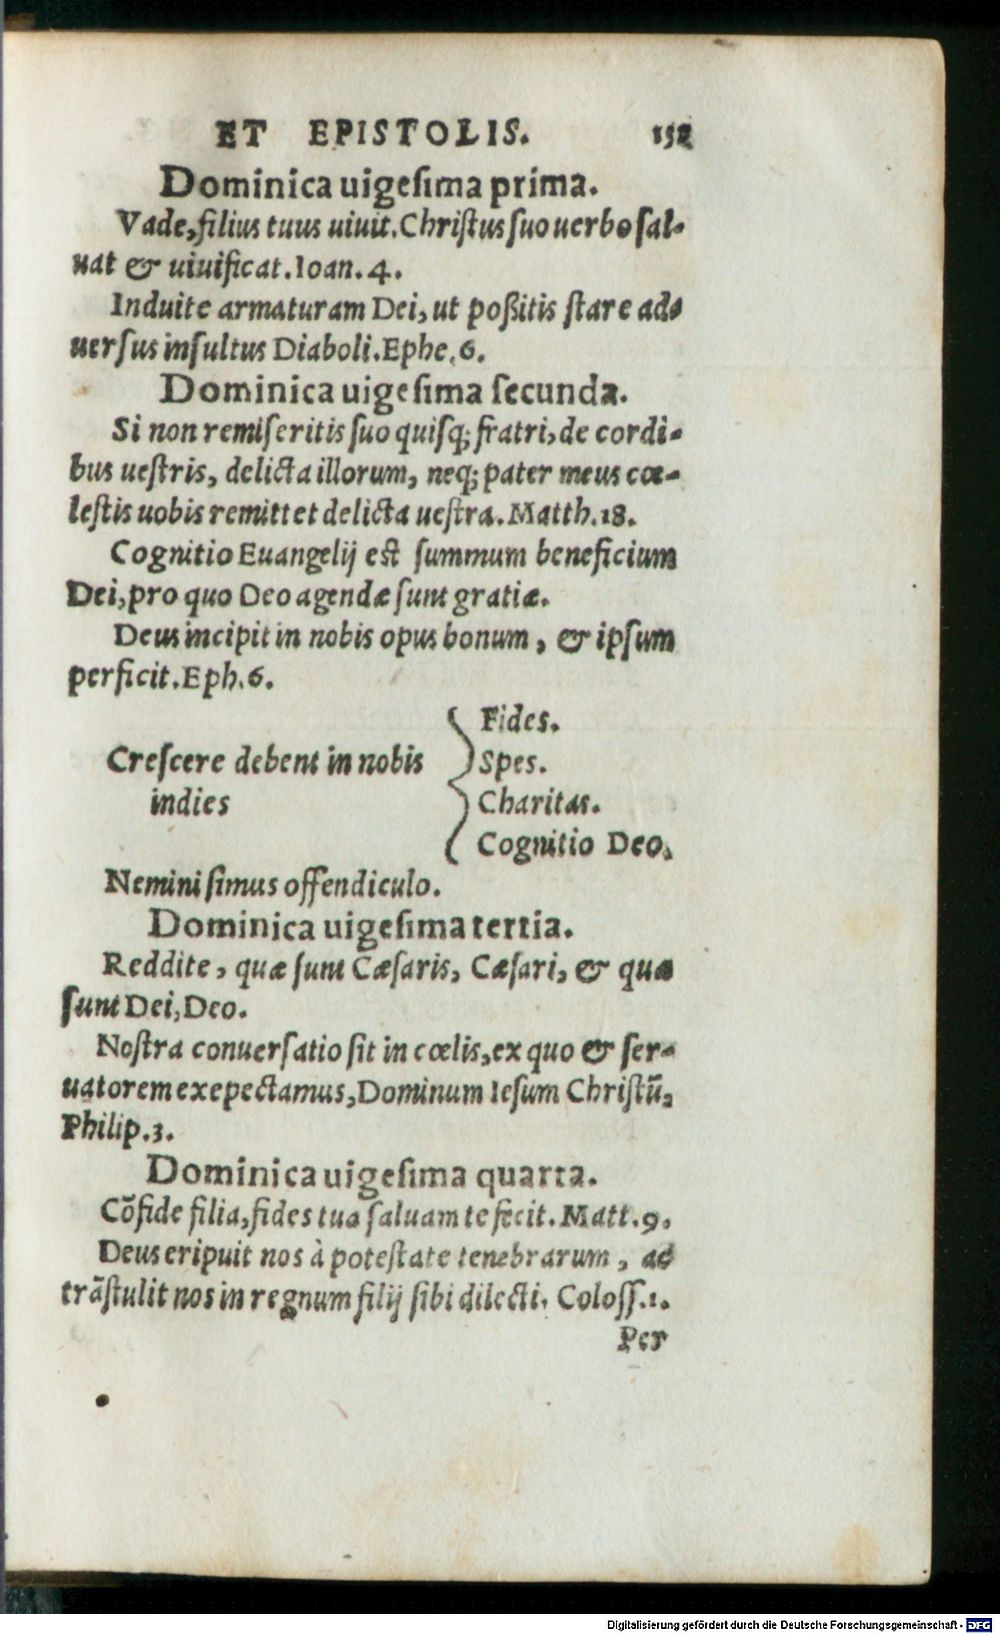 ET EPISTOLIS. 152
Dominica uigeſima prima.
Vade, filius tuus uiuit. Chriſtus ſuo uerbo ſal-
uat & uiuificat. Ioan. 4.
Induite armaturam Dei, ut poßitis ſtare ad-
uerſus inſultus Diaboli. Ephe. 6.
Dominica uigeſima ſecunda.
Si non remiſeritis ſuo quiſq; fratri, de cordi-
bus ueſtris, delicta illorum, neq; pater meus cœ-
leſtis uobis remittet delicta ueſtra. Matth. 18.
Cognitio Euangelij eſt ſummum beneficium
Dei, pro quo Deo agendæ ſunt gratiæ.
Deus incipit in nobis opus bonum, & ipſum
perficit. Eph. 6.
Creſcere debent in nobis
indies
Fides.
Spes.
Charitas.
Cognitio Deo.
Nemini ſimus offendiculo.
Dominica uigeſima tertia.
Reddite, quæ ſunt Cæſaris, Cæſari, & quæ
ſunt Dei, Deo.
Noſtra conuerſatio ſit in cœlis, ex quo & ſer-
uatorem exepectamus, Dominum Ieſum Chriſtū,
Philip. 3.
Dominica uigeſima quarta.
Cōfide filia, fides tua ſaluam te fecit. Matt. 9.
Deus eripuit nos à poteſtate tenebrarum, ac
trāſtulit nos in regnum filij ſibi dilecti. Coloſſ. 1.
Per
Digitalisierung gefördert durch die Deutsche Forschungsgemeinschaft - DFG